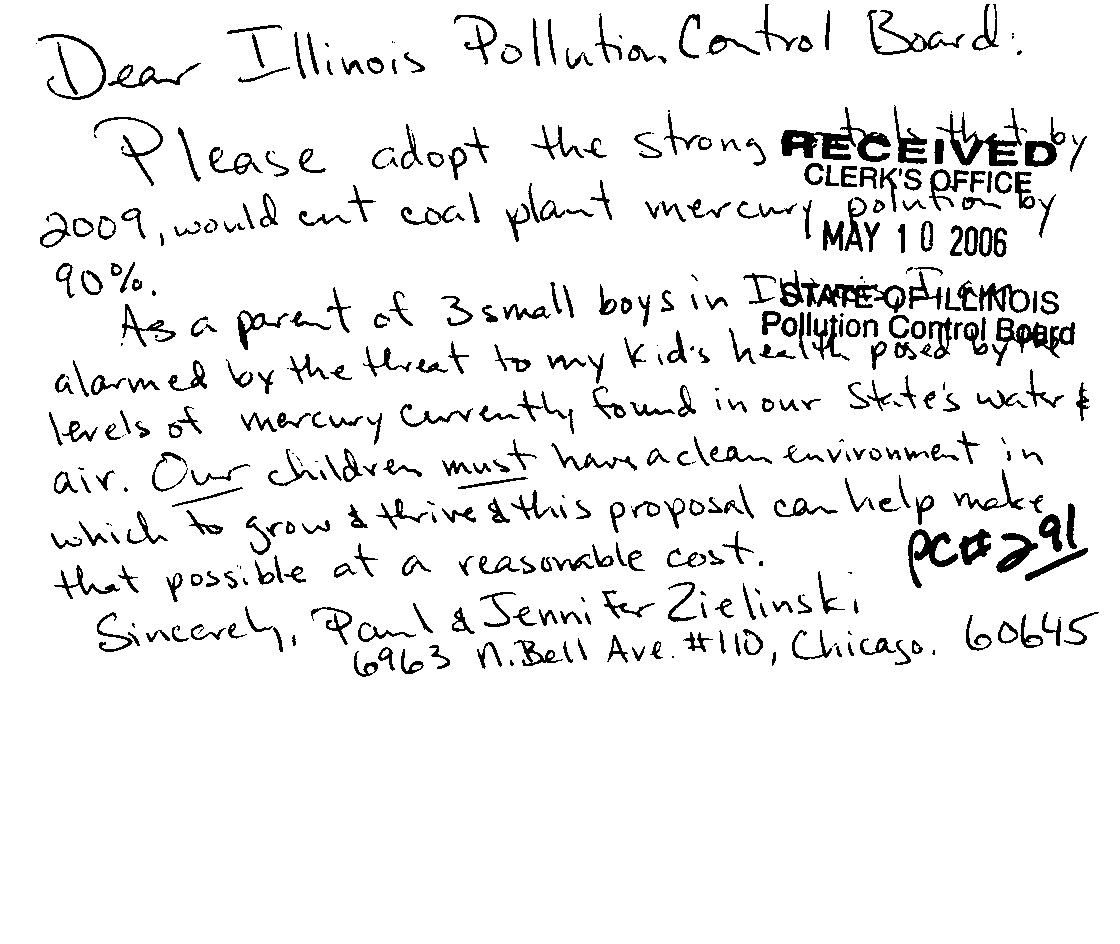 Dear Illinois Pollution Control Board:
Please adopt the strong that by
RECEIVED
CLERK'S OFFICE
2009, would cut coal plant mercury polution by
MAY 10 2006
90%.
As a parent of 3 small boys in Illinois, I am
STATE OF ILLINOIS
Pollution Control Board
alarmed by the threat to my kid's health posed by the
levels of mercury currently found in our State's water &
air. Our children must have a clean environment in
which to grow & thrive & this proposal can help make
PC# 291
that possible at a reasonable cost.
Sincerely, Paul & Jennifer Zielinski
6963 N. Bell Ave. #110, Chicago. 60645